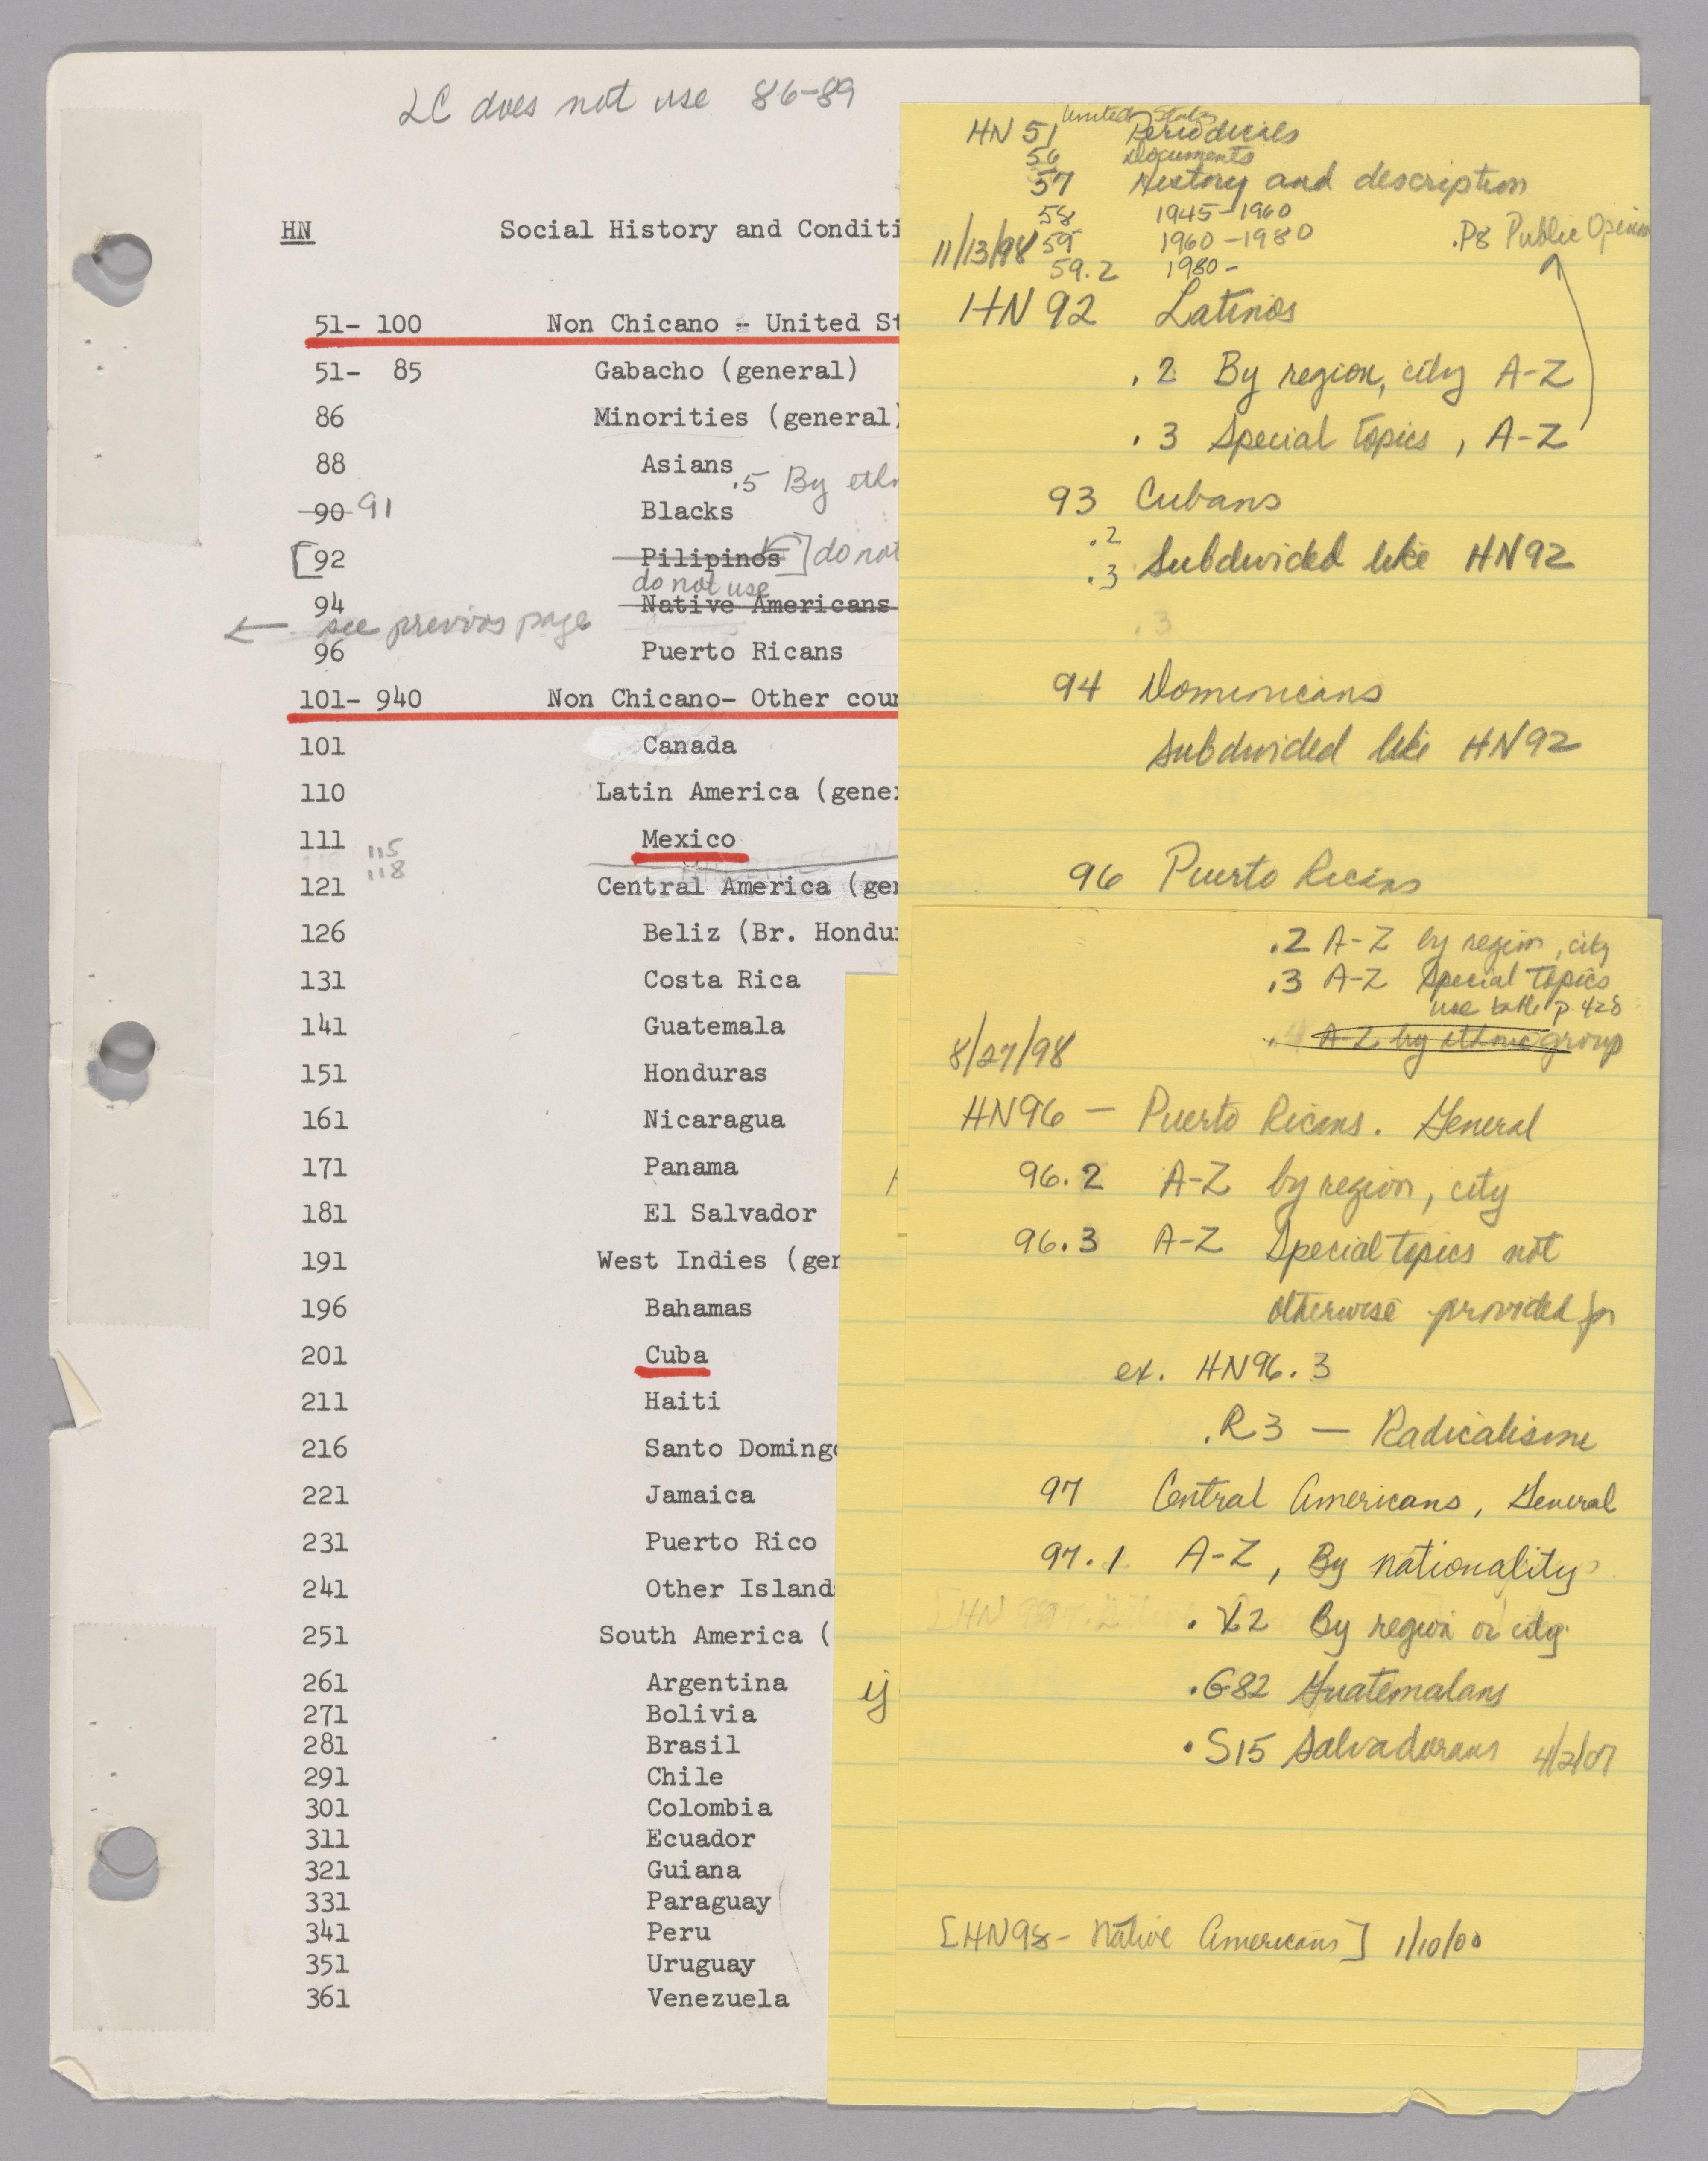 LC does not use 86-89
HN Social History and Conditi
51- 100 Non Chicano - United St
51- 85 Gabacho (general)
86 Minorities (general)
88 Asians
.5 By ethn
90 91 Blacks
[92 Pilipinos ] do not
do not use
94 Native Americans
← see previos page
96 Puerto Ricans
101- 940 Non Chicano- Other coun
101 Canada
110 Latin America (gener
111 Mexico
115
118
121 Central America (gen
126 Beliz (Br. Hondur
131 Costa Rica
141 Guatemala
151 Honduras
161 Nicaragua
171 Panama
181 El Salvador
191 West Indies (gen
196 Bahamas
201 Cuba
211 Haiti
216 Santo Domingo
221 Jamaica
231 Puerto Rico
241 Other Island
251 South America (
261 Argentina
271 Bolivia
281 Brasil
291 Chile
301 Colombia
311 Ecuador
321 Guiana
331 Paraguay
341 Peru
351 Uruguay
361 Venezuela
United States
HN 51 Periodicals
56 Documents
57 History and description
58 1945-1960
11/13/98 59 1960-1980 .P8 Public Opinion
59.2 1980-
HN 92 Latinos
.2 By region, city A-Z
.3 Special Topics, A-Z
93 Cubans
.2
.3 Subdivided like HN92
.3
94 Dominicans
Subdivided like HN92
96 Puerto Ricans
.2 A-Z by region, city
.3 A-Z Special Topics
use table p. 428
.4 A-Z by ethnic group
8/27/98
HN96 - Puerto Ricans. General
96.2 A-Z by region, city
96.3 A-Z Special topics not
otherwise provided for
ex. HN96.3
.R3 — Radicalism
97 Central Americans, General
97.1 A-Z, By nationality
.x2 By region or city
.G82 Guatemalans
.S15 Salvadorans 4/2/07
[HN98- Native Americans] 1/10/00
ij